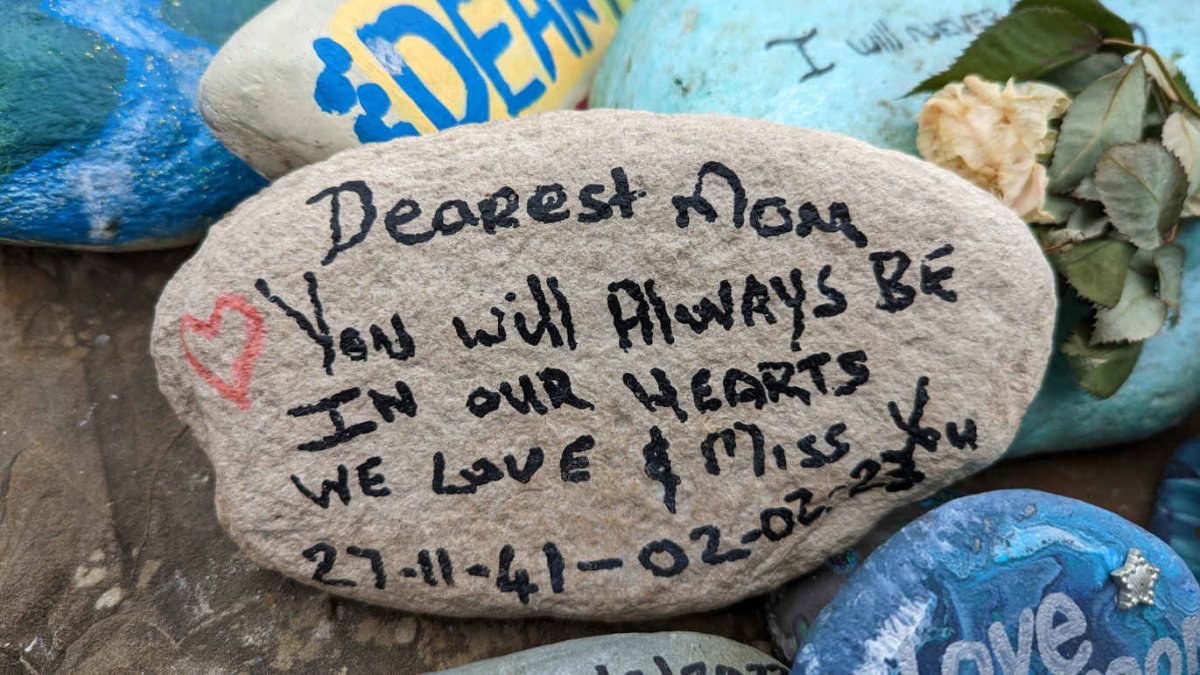 DEAN
I will never
Dearest Mom
You will Always BE
IN OUR HEARTS
WE LOVE & Miss You
27-11-41-02-02-23
Love